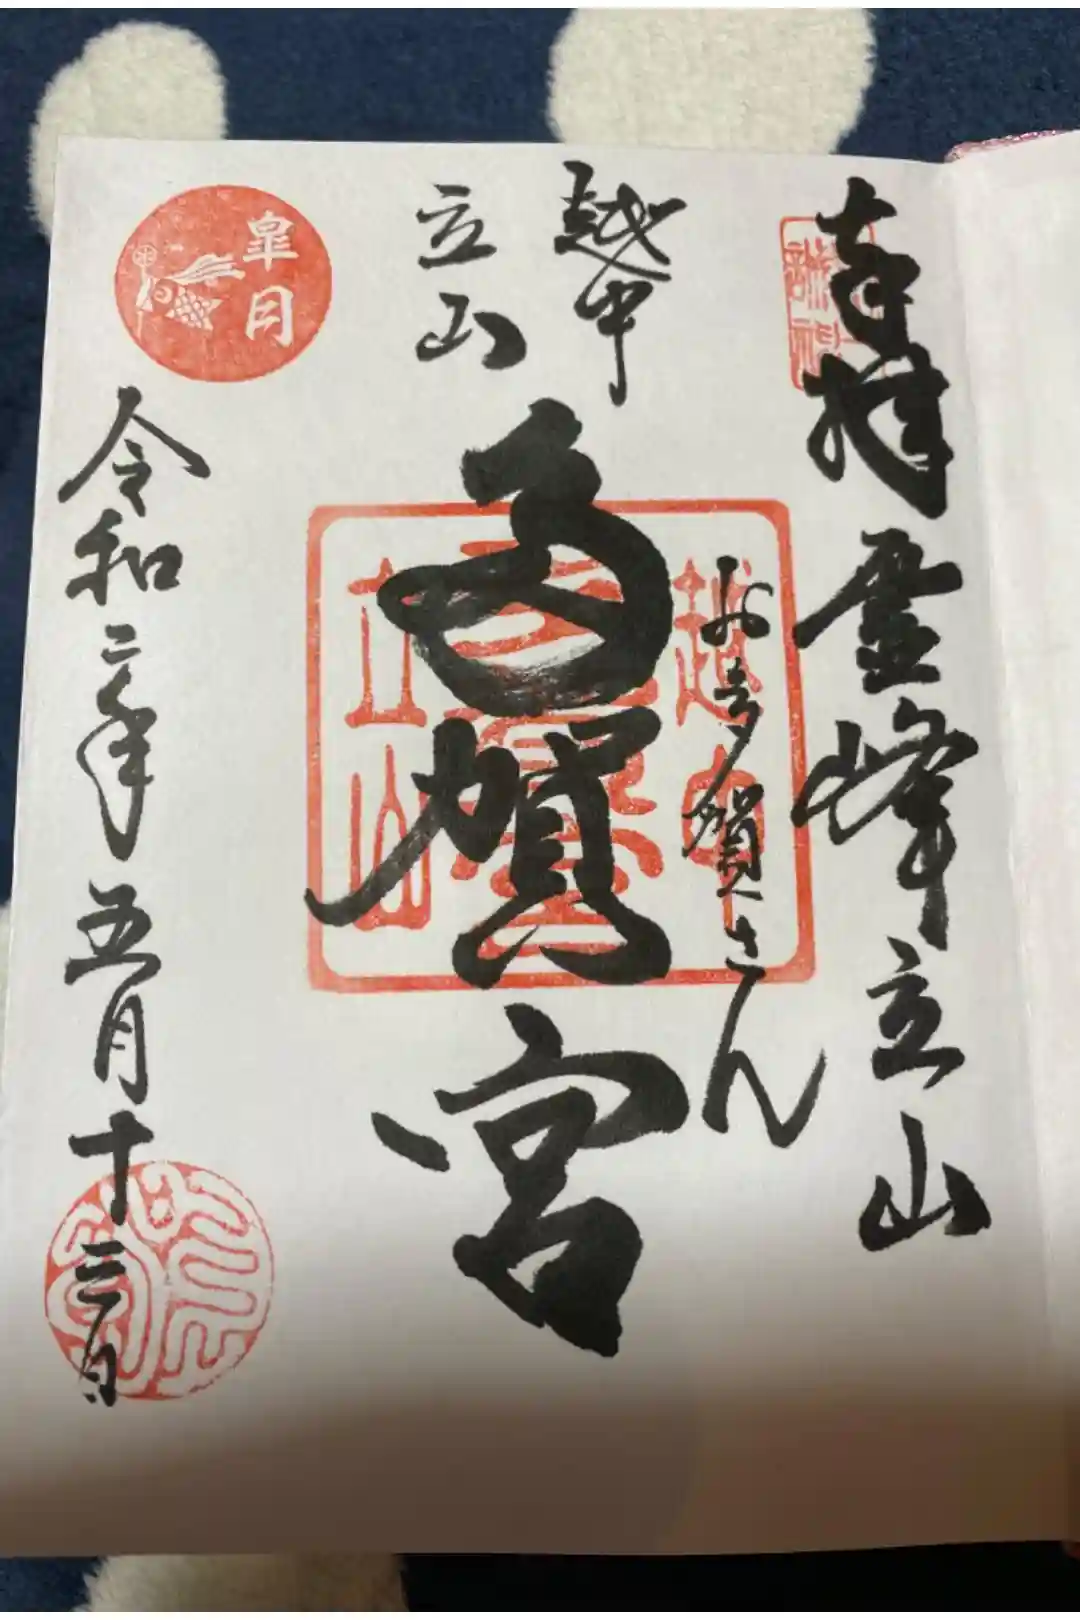 奉拝
霊峰立山
越中
立山
お多賀さん
多賀宮
越中
立山
皐月
令和二年五月十三日